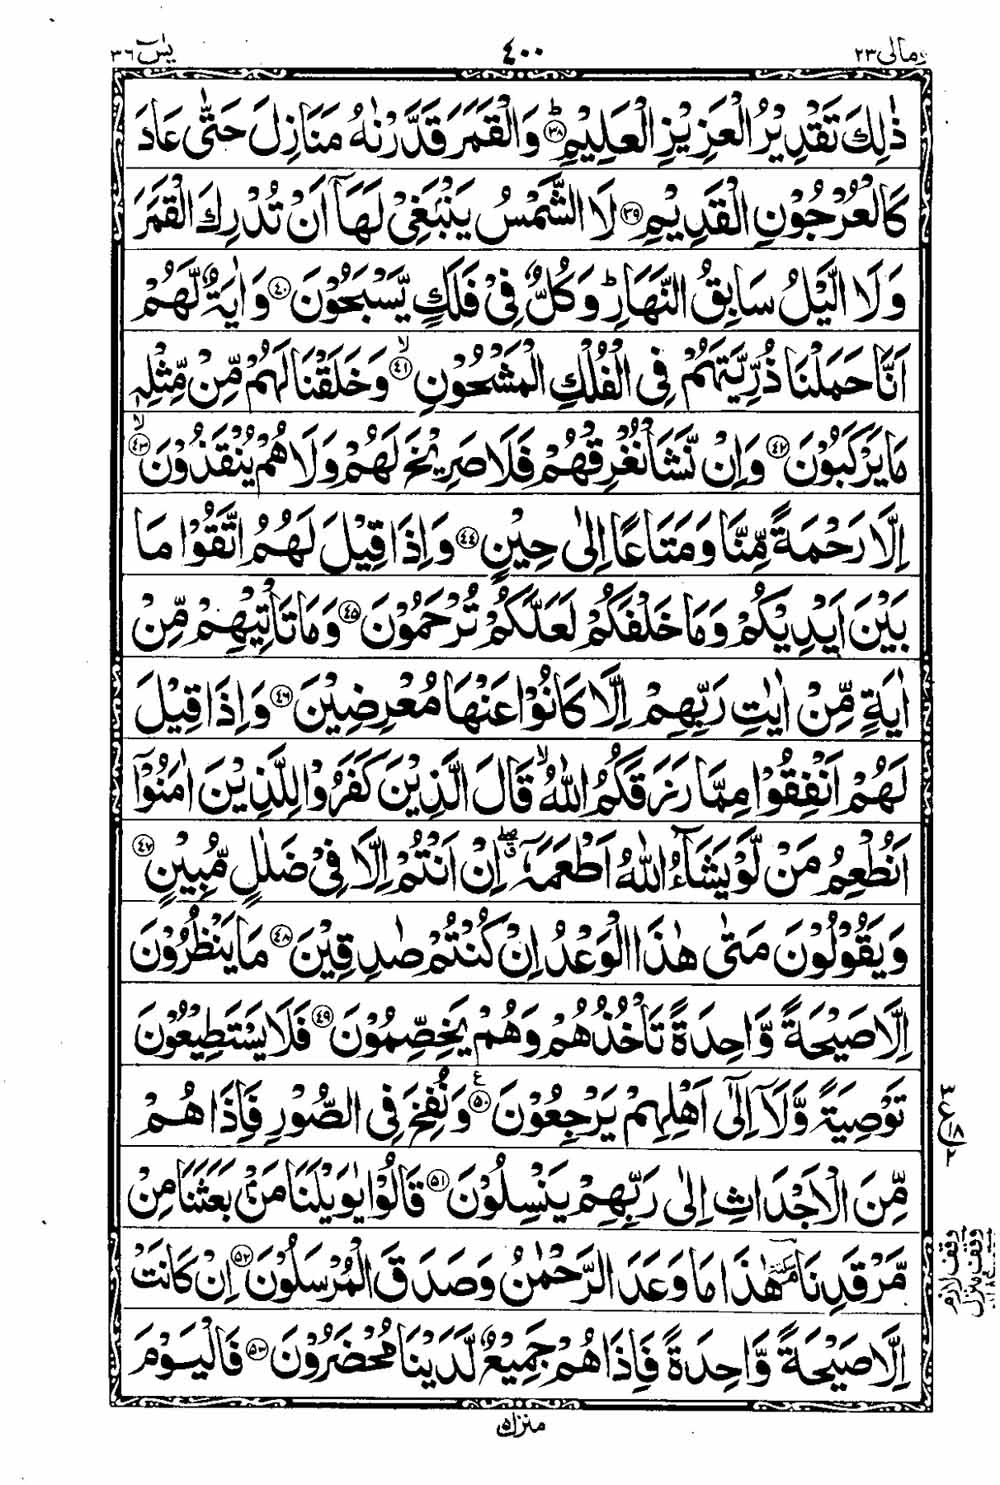 ومالی ٢٣ ٤٠٠ یٰسٓ ٣٦
ذٰلِكَ تَقْدِيْرُ الْعَزِيْزِ الْعَلِيْمِؕ ٣٨ وَالْقَمَرَ قَدَّرْنٰهُ مَنَازِلَ حَتّٰى عَادَ
كَالْعُرْجُوْنِ الْقَدِيْمِ ٣٩ لَا الشَّمْسُ يَنْۢبَغِيْ لَهَاۤ اَنْ تُدْرِكَ الْقَمَرَ
وَلَا الَّيْلُ سَابِقُ النَّهَارِؕ وَكُلٌّ فِيْ فَلَكٍ يَّسْبَحُوْنَ ٤٠ وَاٰيَةٌ لَّهُمْ
اَنَّا حَمَلْنَا ذُرِّيَّتَهُمْ فِي الْفُلْكِ الْمَشْحُوْنِۙ ٤١ وَخَلَقْنَا لَهُمْ مِّنْ مِّثْلِهٖ
مَا يَرْكَبُوْنَ ٤٢ وَاِنْ نَّشَاْ نُغْرِقْهُمْ فَلَا صَرِيْخَ لَهُمْ وَلَا هُمْ يُنْقَذُوْنَۙ ٤٣
اِلَّا رَحْمَةً مِّنَّا وَمَتَاعًا اِلٰى حِيْنٍ ٤٤ وَاِذَا قِيْلَ لَهُمُ اتَّقُوْا مَا
بَيْنَ اَيْدِيْكُمْ وَمَا خَلْفَكُمْ لَعَلَّكُمْ تُرْحَمُوْنَ ٤٥ وَمَا تَاْتِيْهِمْ مِّنْ
اٰيَةٍ مِّنْ اٰيٰتِ رَبِّهِمْ اِلَّا كَانُوْا عَنْهَا مُعْرِضِيْنَ ٤٦ وَاِذَا قِيْلَ
لَهُمْ اَنْفِقُوْا مِمَّا رَزَقَكُمُ اللّٰهُۙ قَالَ الَّذِيْنَ كَفَرُوْا لِلَّذِيْنَ اٰمَنُوْۤا
اَنُطْعِمُ مَنْ لَّوْ يَشَآءُ اللّٰهُ اَطْعَمَهٗۤ ۖق اِنْ اَنْتُمْ اِلَّا فِيْ ضَلٰلٍ مُّبِيْنٍ ٤٧
وَيَقُوْلُوْنَ مَتٰى هٰذَا الْوَعْدُ اِنْ كُنْتُمْ صٰدِقِيْنَ ٤٨ مَا يَنْظُرُوْنَ
اِلَّا صَيْحَةً وَّاحِدَةً تَاْخُذُهُمْ وَهُمْ يَخِصِّمُوْنَ ٤٩ فَلَا يَسْتَطِيْعُوْنَ
تَوْصِيَةً وَّلَاۤ اِلٰۤى اَهْلِهِمْ يَرْجِعُوْنَ ٥٠ ع وَنُفِخَ فِي الصُّوْرِ فَاِذَا هُمْ
٣ ع ١٨ ٢
مِّنَ الْاَجْدَاثِ اِلٰى رَبِّهِمْ يَنْسِلُوْنَ ٥١ قَالُوْا يٰوَيْلَنَا مَنْۢ بَعَثَنَا مِنْ
مَّرْقَدِنَا ۘ هٰذَا مَا وَعَدَ الرَّحْمٰنُ وَصَدَقَ الْمُرْسَلُوْنَ ٥٢ اِنْ كَانَتْ
وقف لازم
وقف منزل
اِلَّا صَيْحَةً وَّاحِدَةً فَاِذَا هُمْ جَمِيْعٌ لَّدَيْنَا مُحْضَرُوْنَ ٥٣ فَالْيَوْمَ
منزل ٥